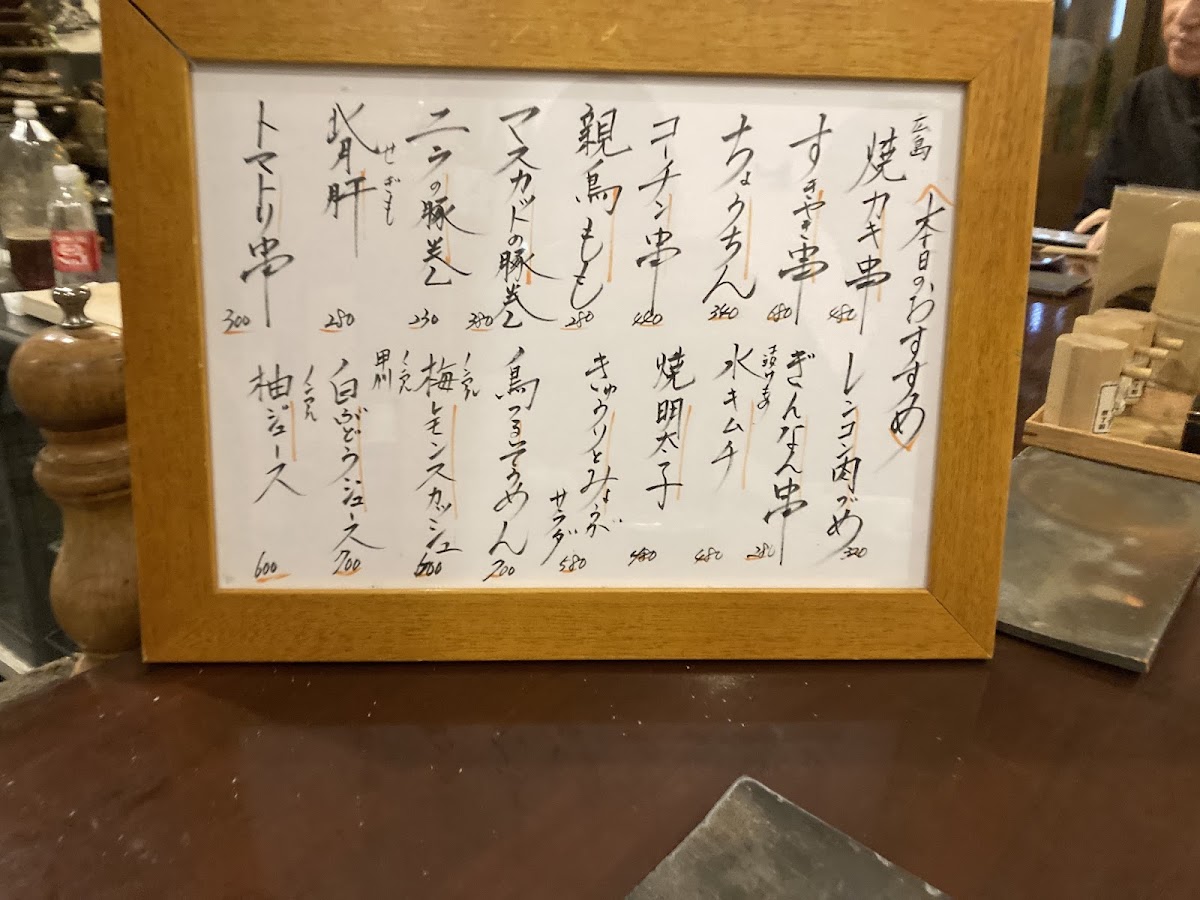 本日のおすすめ
広島
焼カキ串 480
すきやき串 480
ちょうちん 340
コーチン串 440
親鳥もも 280
マスカットの豚巻 380
ニラの豚巻 230
背肝 せぎも 280
トマトリ串 300
レンコン肉づめ 320
ぎんなん串 280
水キムチ 480
焼明太子 480
きゅうりとみょうが
サラダ 580
鳥つるそうめん 700
ノンアル
梅レモンスカッシュ 600
甲州
白ぶどうジュース 700
ノンアル
柚ジュース 600